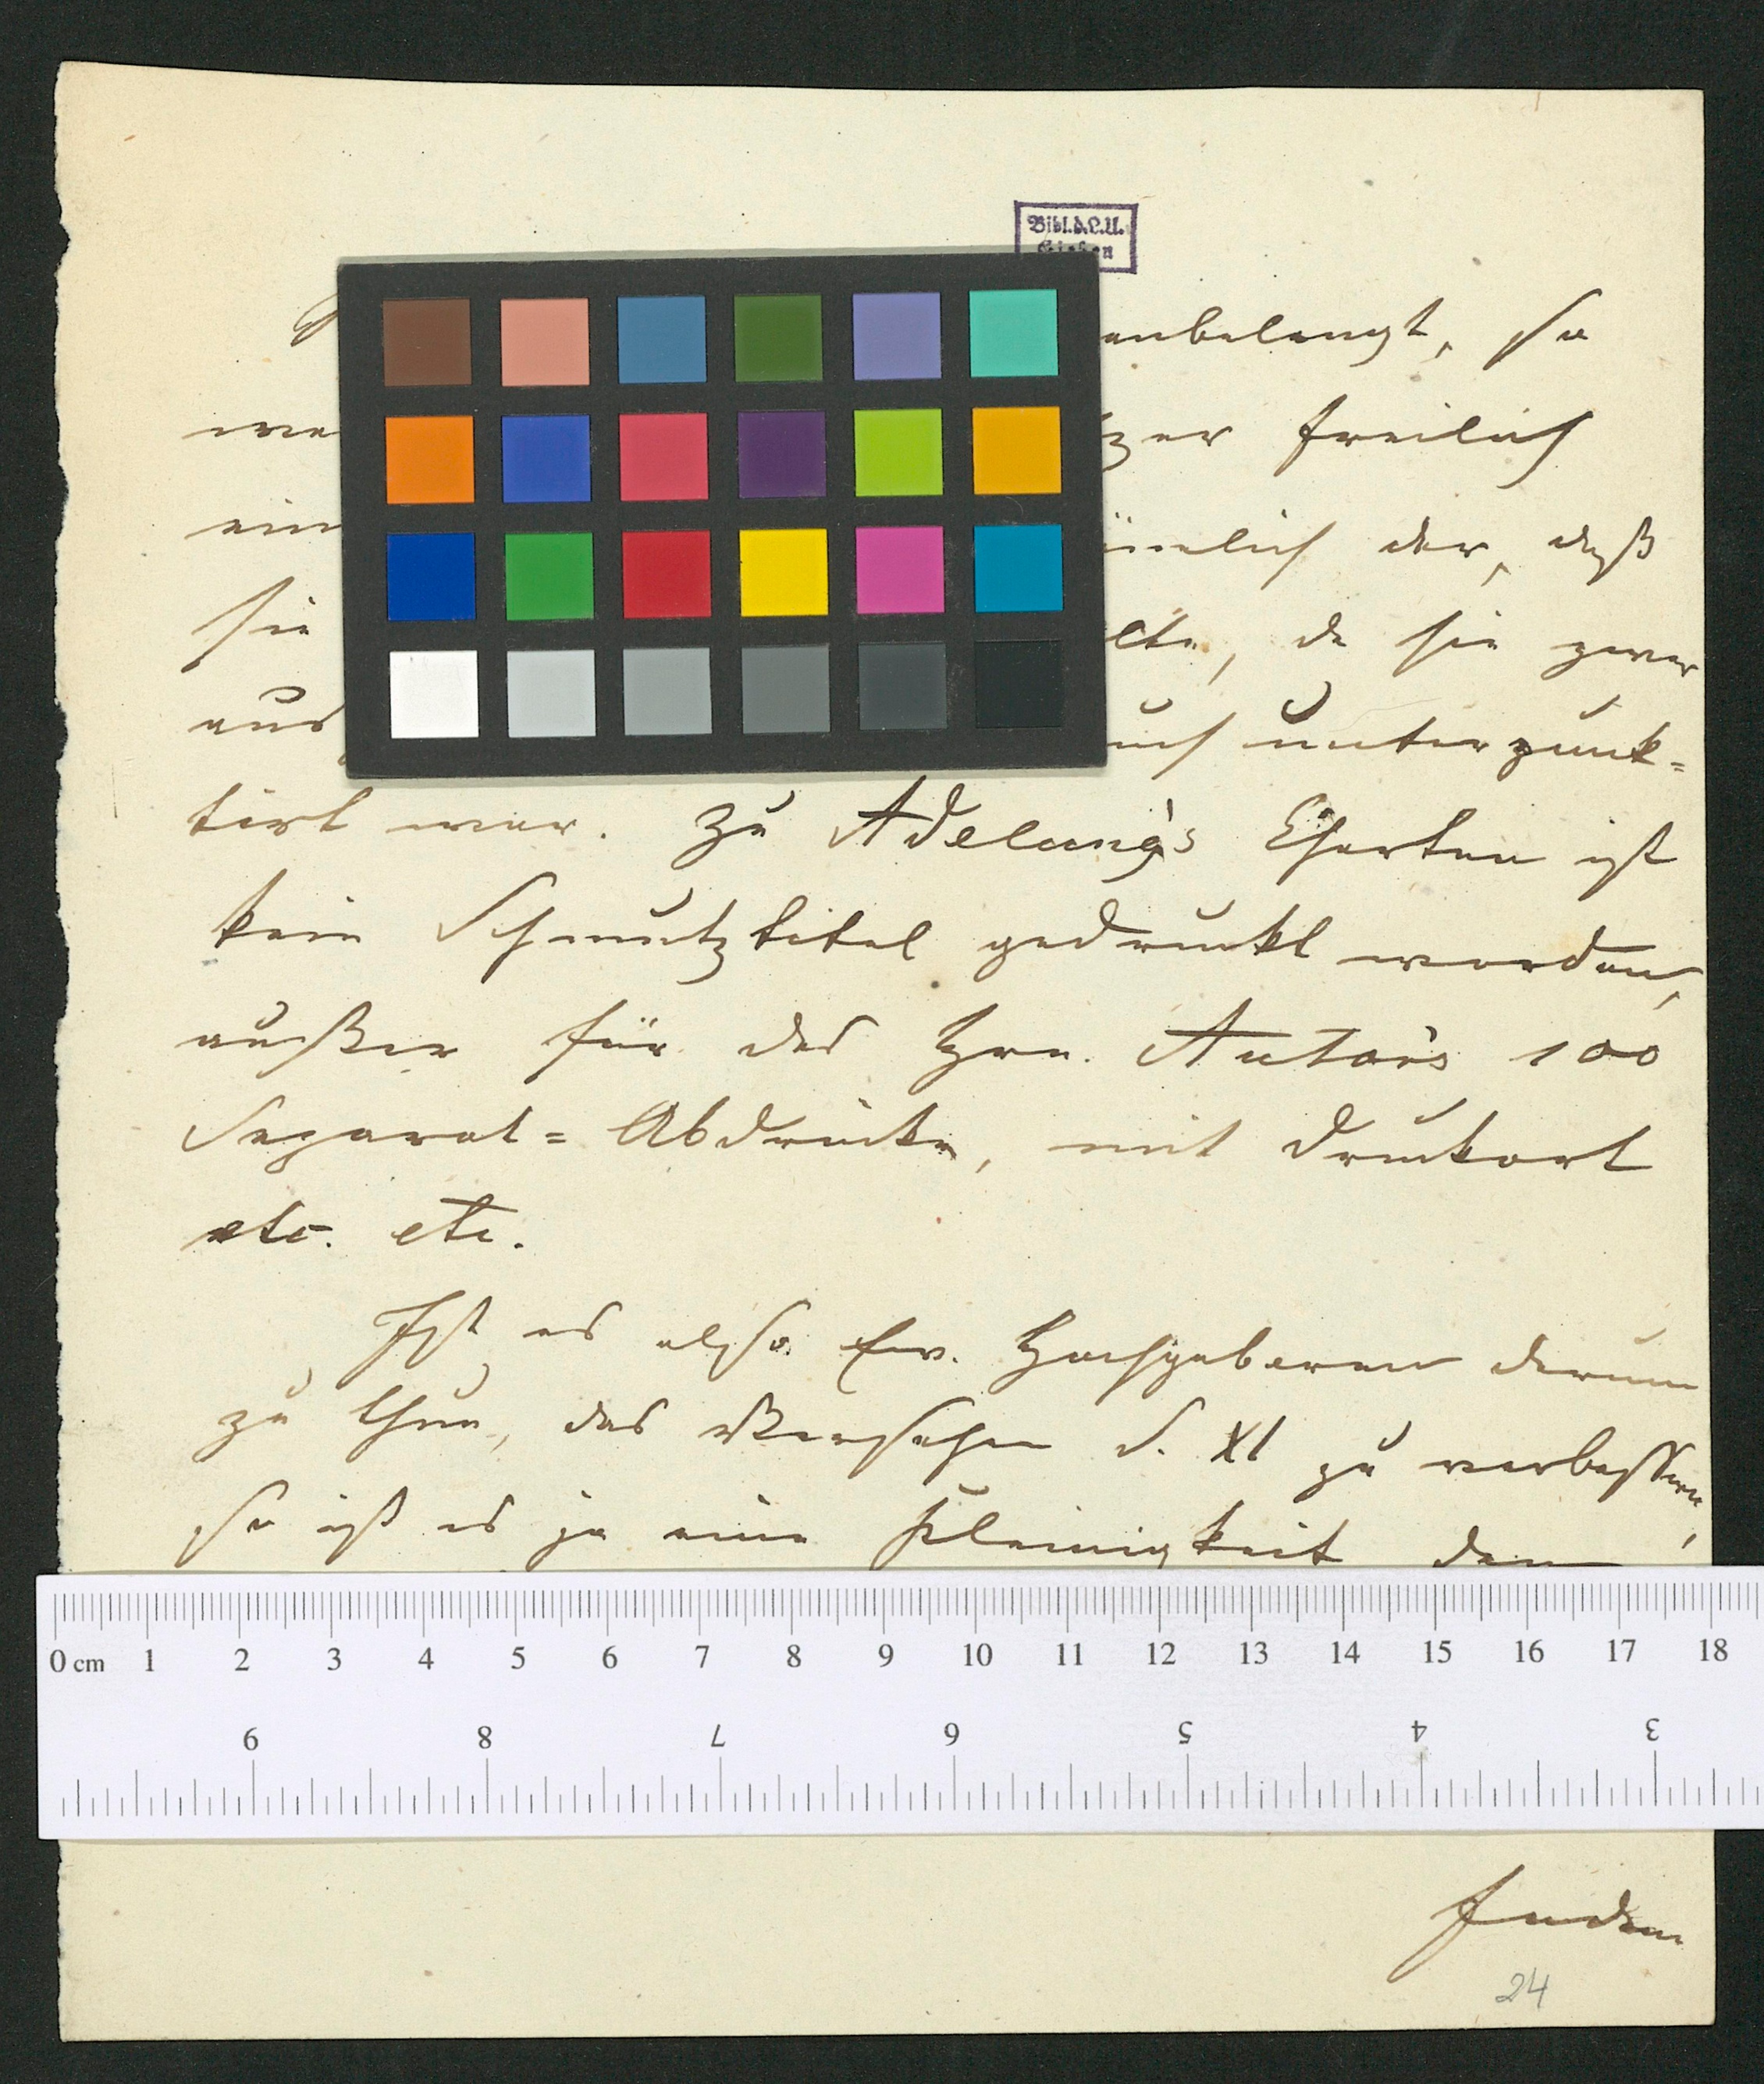 Bibl.d.L.U.
Gießen
anbelangt, so
freilich
der, daß
sie da sie zwar
aus auch unterpunk=
tirt war. Zu Adelung's Charten ist
kein Schmutztitel gedruckt worden,
außer für des Hrn. Autors 100
Separat=Abdrücke, mit Druckort
etc. etc.
Ist es also Ew. Hochgeboren darum
zu thun, das Versehen S. XI zu verbessern,
so ist es ja eine Kleinigkeit den
0 cm 1 2 3 4 5 6 7 8 9 10 11 12 13 14 15 16 17 18
9 8 7 6 5 4 3
24